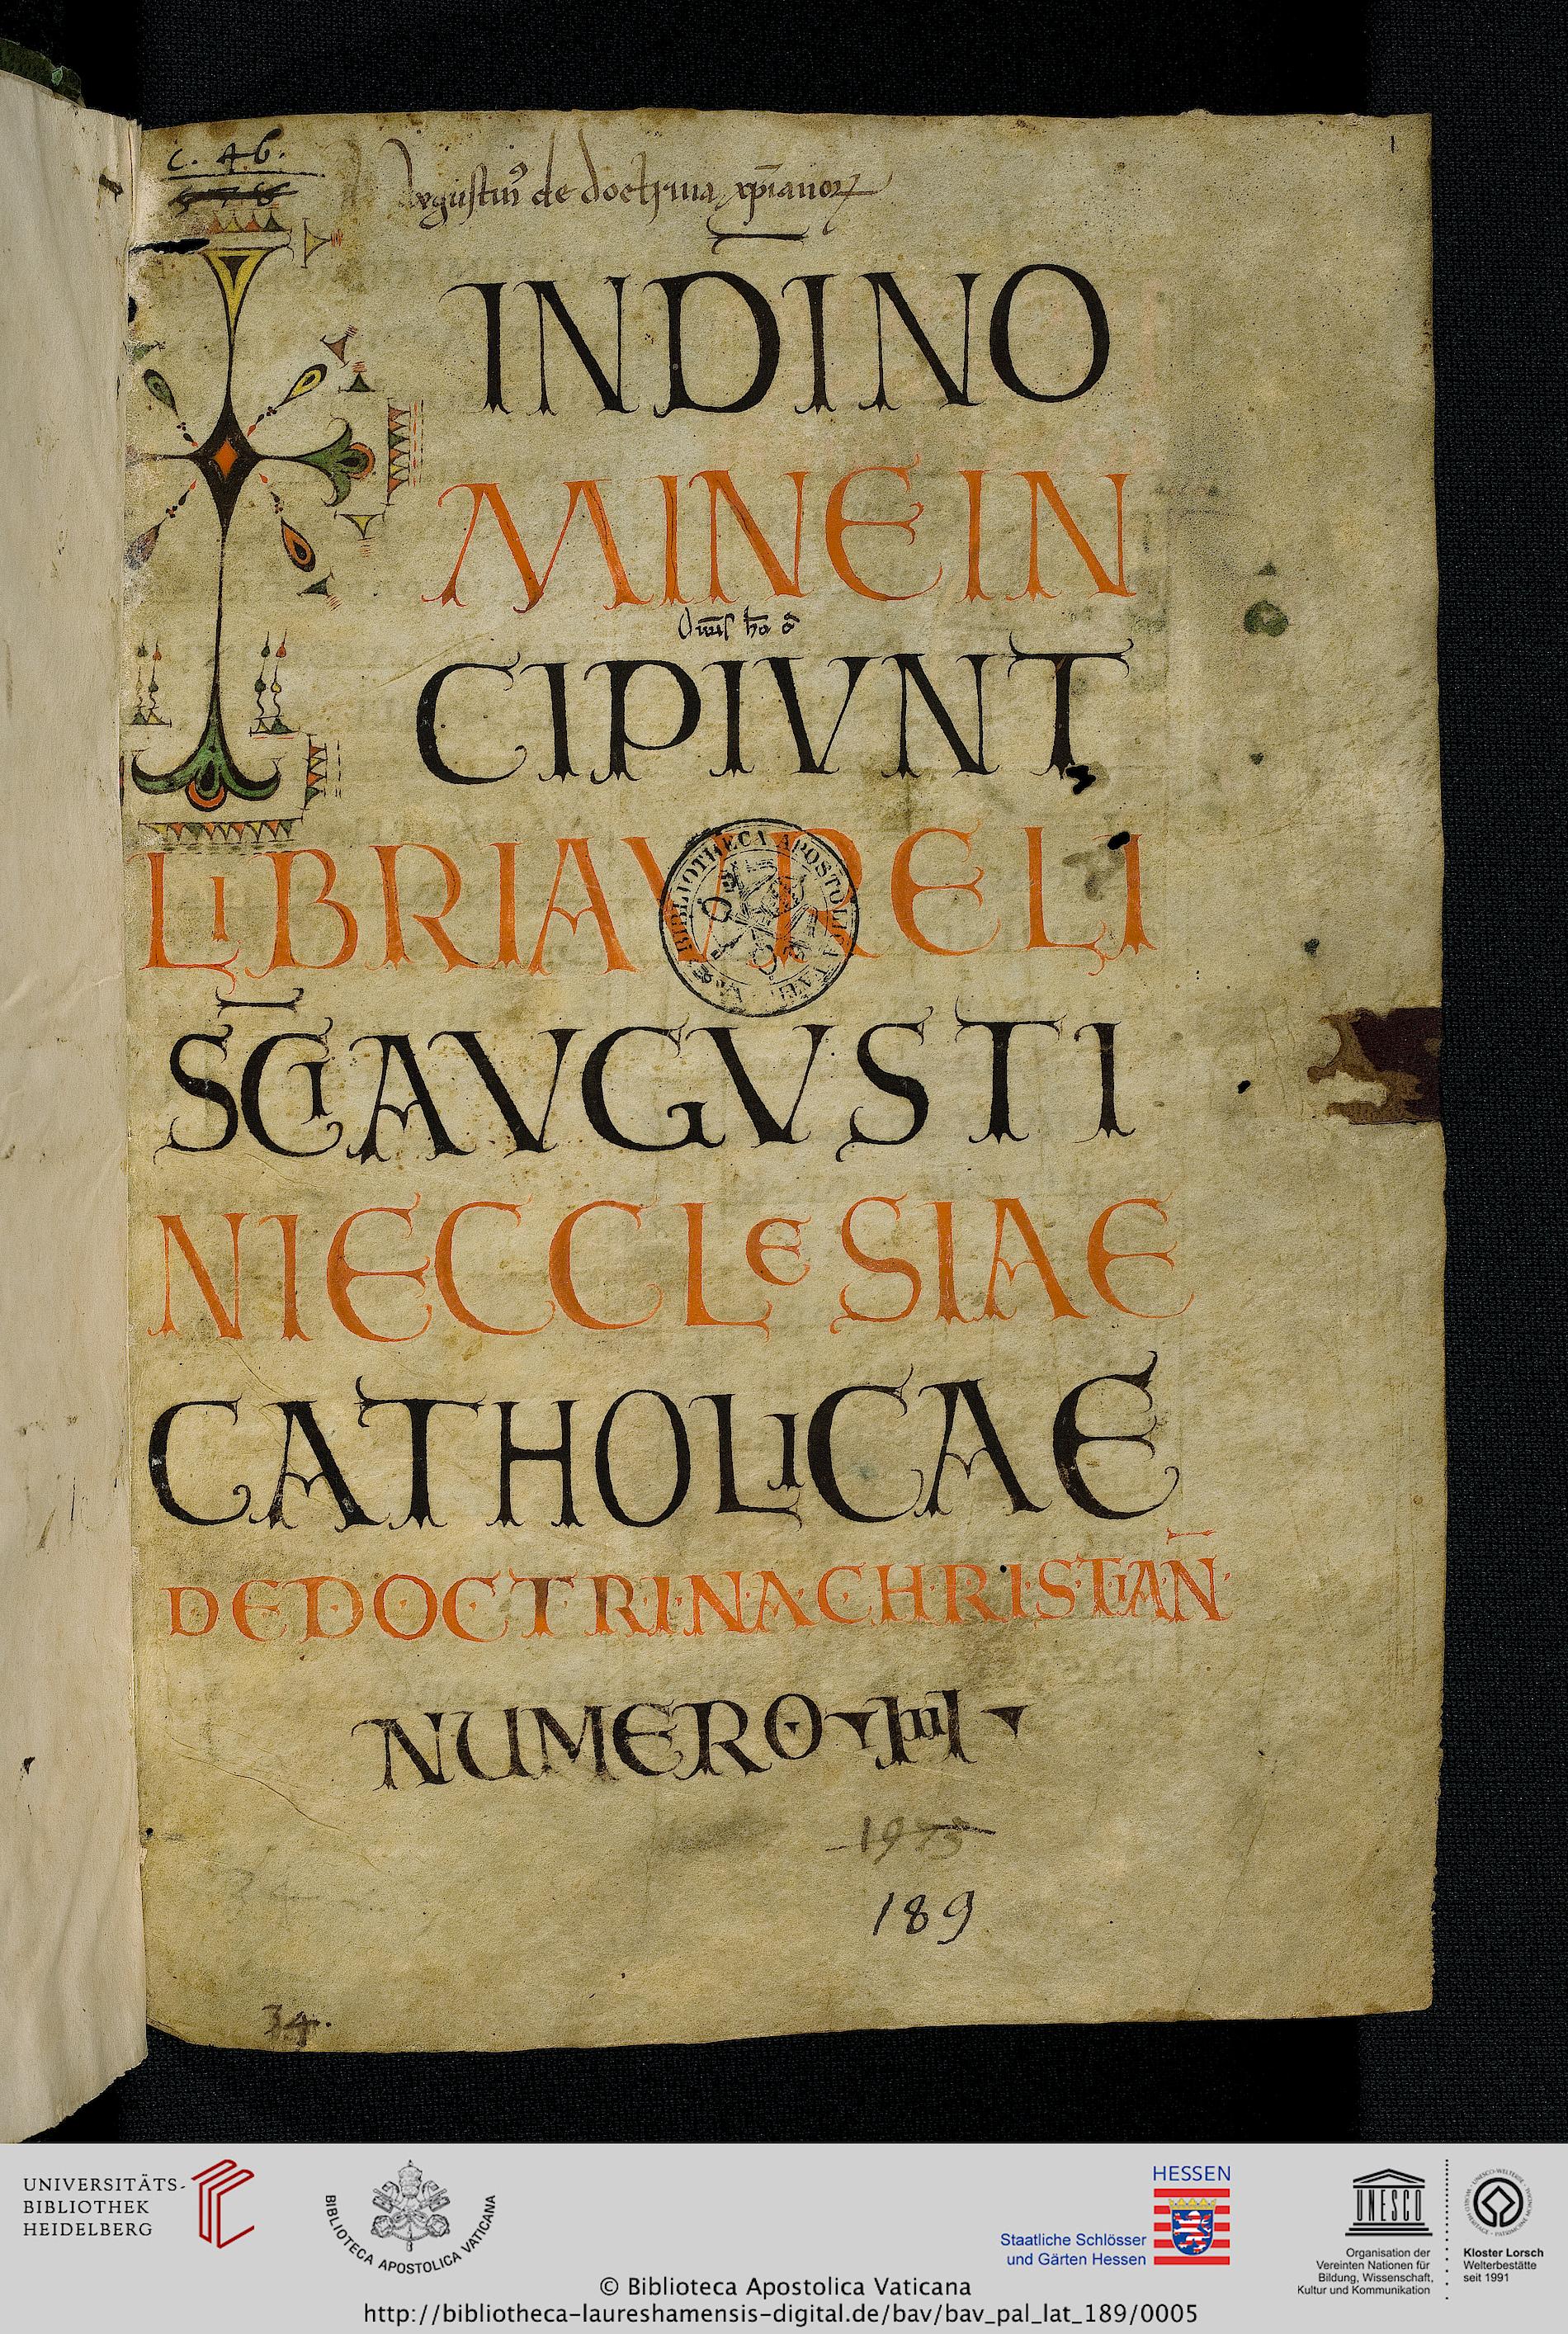 c. 46.
578
Augustin9 de doctrina xp̄ianorꝫ
1
IN DI NO
MINE IN
Om̅is ho
CIPIVNT
LIBRI AVRELI
SC̅I AVGVSTI
NI ECCLESIAE
CATHOLICAE
DE DOCTRINA CHRISTIAN̅
NUMERO IIII
1975
189
34.
UNIVERSITÄTS-
BIBLIOTHEK
HEIDELBERG
BIBLIOTECA APOSTOLICA VATICANA
HESSEN
Staatliche Schlösser
und Gärten Hessen
UNESCO
Organisation der
Vereinten Nationen für
Bildung, Wissenschaft,
Kultur und Kommunikation
Kloster Lorsch
Welterbestätte
seit 1991
© Biblioteca Apostolica Vaticana
http://bibliotheca-laureshamensis-digital.de/bav/bav_pal_lat_189/0005